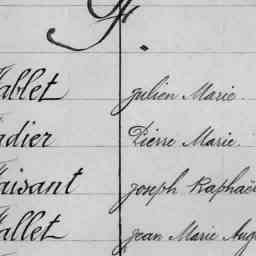 G.
allet Julien Marie.
adier Pierre Marie.
aisant Joseph Raphaë
allet Jean Marie Aug